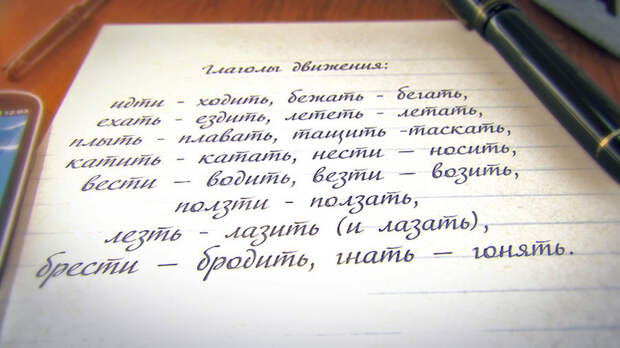 Глаголы движения:
идти - ходить, бежать - бегать,
ехать - ездить, лететь - летать,
плыть - плавать, тащить -таскать,
катить - катать, нести – носить,
вести – водить, везти – возить,
ползти - ползать,
лезть - лазить (и лазать),
брести – бродить, гнать – гонять.